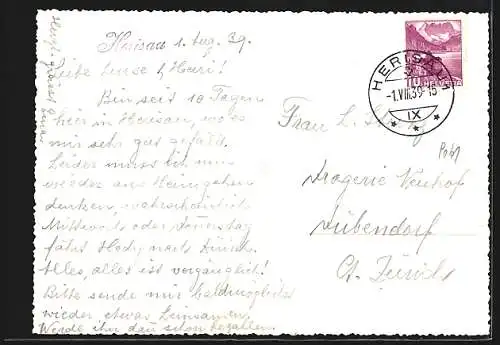 Herisau 1. Aug. 39.
Liebe Luise & Heiri!
Bin seit 10 Tagen
hier in Herisau, wo es
mir sehr gut gefällt.
Leider muss ich nun
wieder ans Heimgehen
denken, wahrscheinlich
Mittwoch oder Donnerstag
fährt Hedy nach Zürich.
Alles, alles ist vergänglich!
Bitte sende mir baldmöglichst
wieder etwas Leinsamen,
Werde ihn dan schon bezahlen.
Herzl. grüsst
HERISAU
-1.VIII.39-15
IX
Frau L.
Drogerie Neuhof
Dübendorf
Ct. Zürich